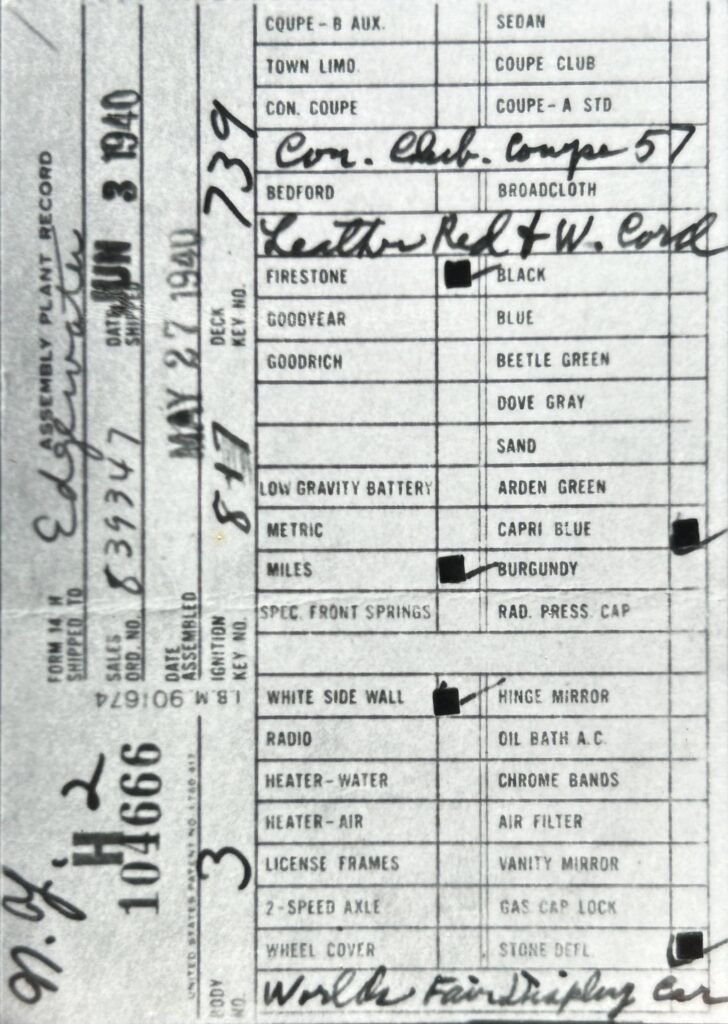 COUPE - B AUX. SEDAN
TOWN LIMO. COUPE CLUB
CON. COUPE COUPE - A STD
Con. Club. Coupe 57
BEDFORD BROADCLOTH
Leather Red & W. Cord
FIRESTONE BLACK
GOODYEAR BLUE
GOODRICH BEETLE GREEN
DOVE GRAY
SAND
LOW GRAVITY BATTERY ARDEN GREEN
METRIC CAPRI BLUE
MILES BURGUNDY
SPEC. FRONT SPRINGS RAD. PRESS. CAP
WHITE SIDE WALL HINGE MIRROR
RADIO OIL BATH A.C.
HEATER - WATER CHROME BANDS
HEATER - AIR AIR FILTER
LICENSE FRAMES VANITY MIRROR
2-SPEED AXLE GAS CAP LOCK
WHEEL COVER STONE DEFL.
Worlds Fair Display Car
FORM 14 H ASSEMBLY PLANT RECORD
SHIPPED TO Edgewater
SALES ORD. NO. 839347 DATE SHIPPED JUN 3 1940
DATE ASSEMBLED MAY 27 1940
IGNITION KEY NO. DECK KEY NO. 739
I.B.M. 901674
N.Y. H 2
104666
UNITED STATES PATENT NO.
BODY NO. 3